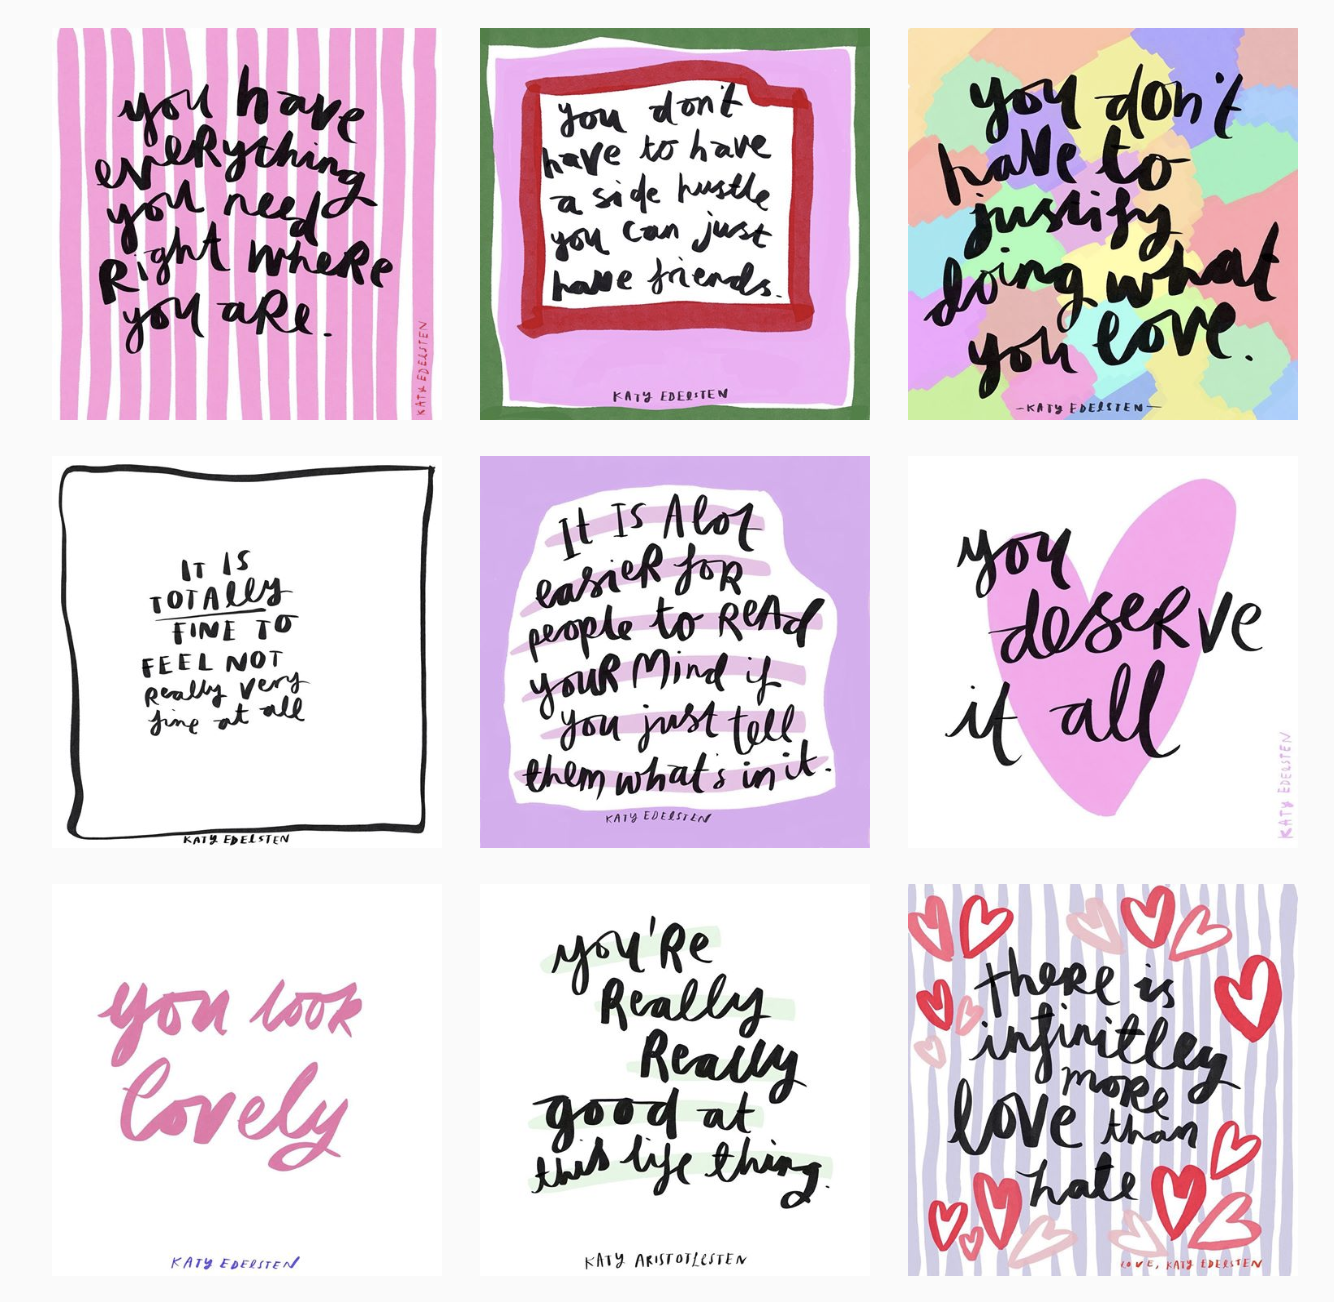 you have
everything
you need
Right where
you are.
KATY EDELSTEN
you don't
have to have
a side hustle
you can just
have friends.
KATY EDELSTEN
you don't
have to
justify
doing what
you love.
-KATY EDELSTEN-
IT IS
TOTAlly
FINE TO
FEEL NOT
Really very
fine at all
KATY EDELSTEN
It Is Alot
easieR foR
people to ReAd
youR Mind if
you just tell
them what's in it.
KATY EDELSTEN
you
deseRve
it all
KATY EDELSTEN
you look
lovely
KATY EDELSTEN
you'Re
Really
Really
good at
this life thing.
KATY ARISTOTLESTEN
theRe is
infinitley
moRe
love than
hate
LOVE, KATY EDELSTEN